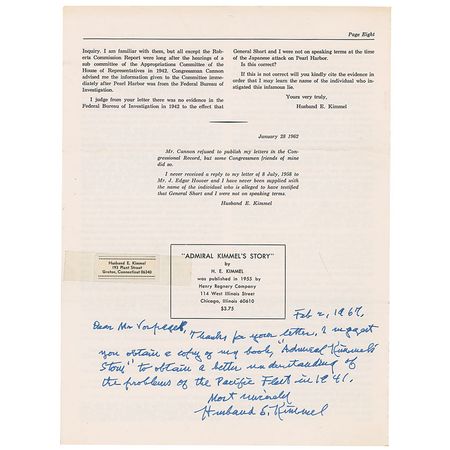 Page Eight
Inquiry. I am familiar with them, but all except the Rob-
erts Commission Report were long after the hearings of a
sub committee of the Appropriations Committee of the
House of Representatives in 1942. Congressman Cannon
advised me the information given to the Committee imme-
diately after Pearl Harbor was from the Federal Bureau of
Investigation.
I judge from your letter there was no evidence in the
Federal Bureau of Investigation in 1942 to the effect that
General Short and I were not on speaking terms at the time
of the Japanese attack on Pearl Harbor.
Is this correct?
If this is not correct will you kindly cite the evidence in
order that I may learn the name of the individual who in-
stigated this infamous lie.
Yours very truly,
Husband E. Kimmel
January 28 1962
Mr. Cannon refused to publish my letters in the Con-
gressional Record, but some Congressmen friends of mine
did so.
I never received a reply to my letter of 8 July, 1958 to
Mr. J. Edgar Hoover and I have never been supplied with
the name of the individual who is alleged to have testified
that General Short and I were not on speaking terms.
Husband E. Kimmel
Husband E. Kimmel
192 Plant Street
Groton, Connecticut 06340
"ADMIRAL KIMMEL'S STORY"
by
H. E. KIMMEL
was published in 1955 by
Henry Regnery Company
114 West Illinois Street
Chicago, Illinois 60610
$3.75
Feb 2, 1967.
Dear Mr
Thanks for your letter, I suggest
you obtain a copy of my book, "Admiral Kimmel's
Story" to obtain a better understanding of
the problems of the Pacific Fleet in 1941.
Most sincerely
Husband E. Kimmel